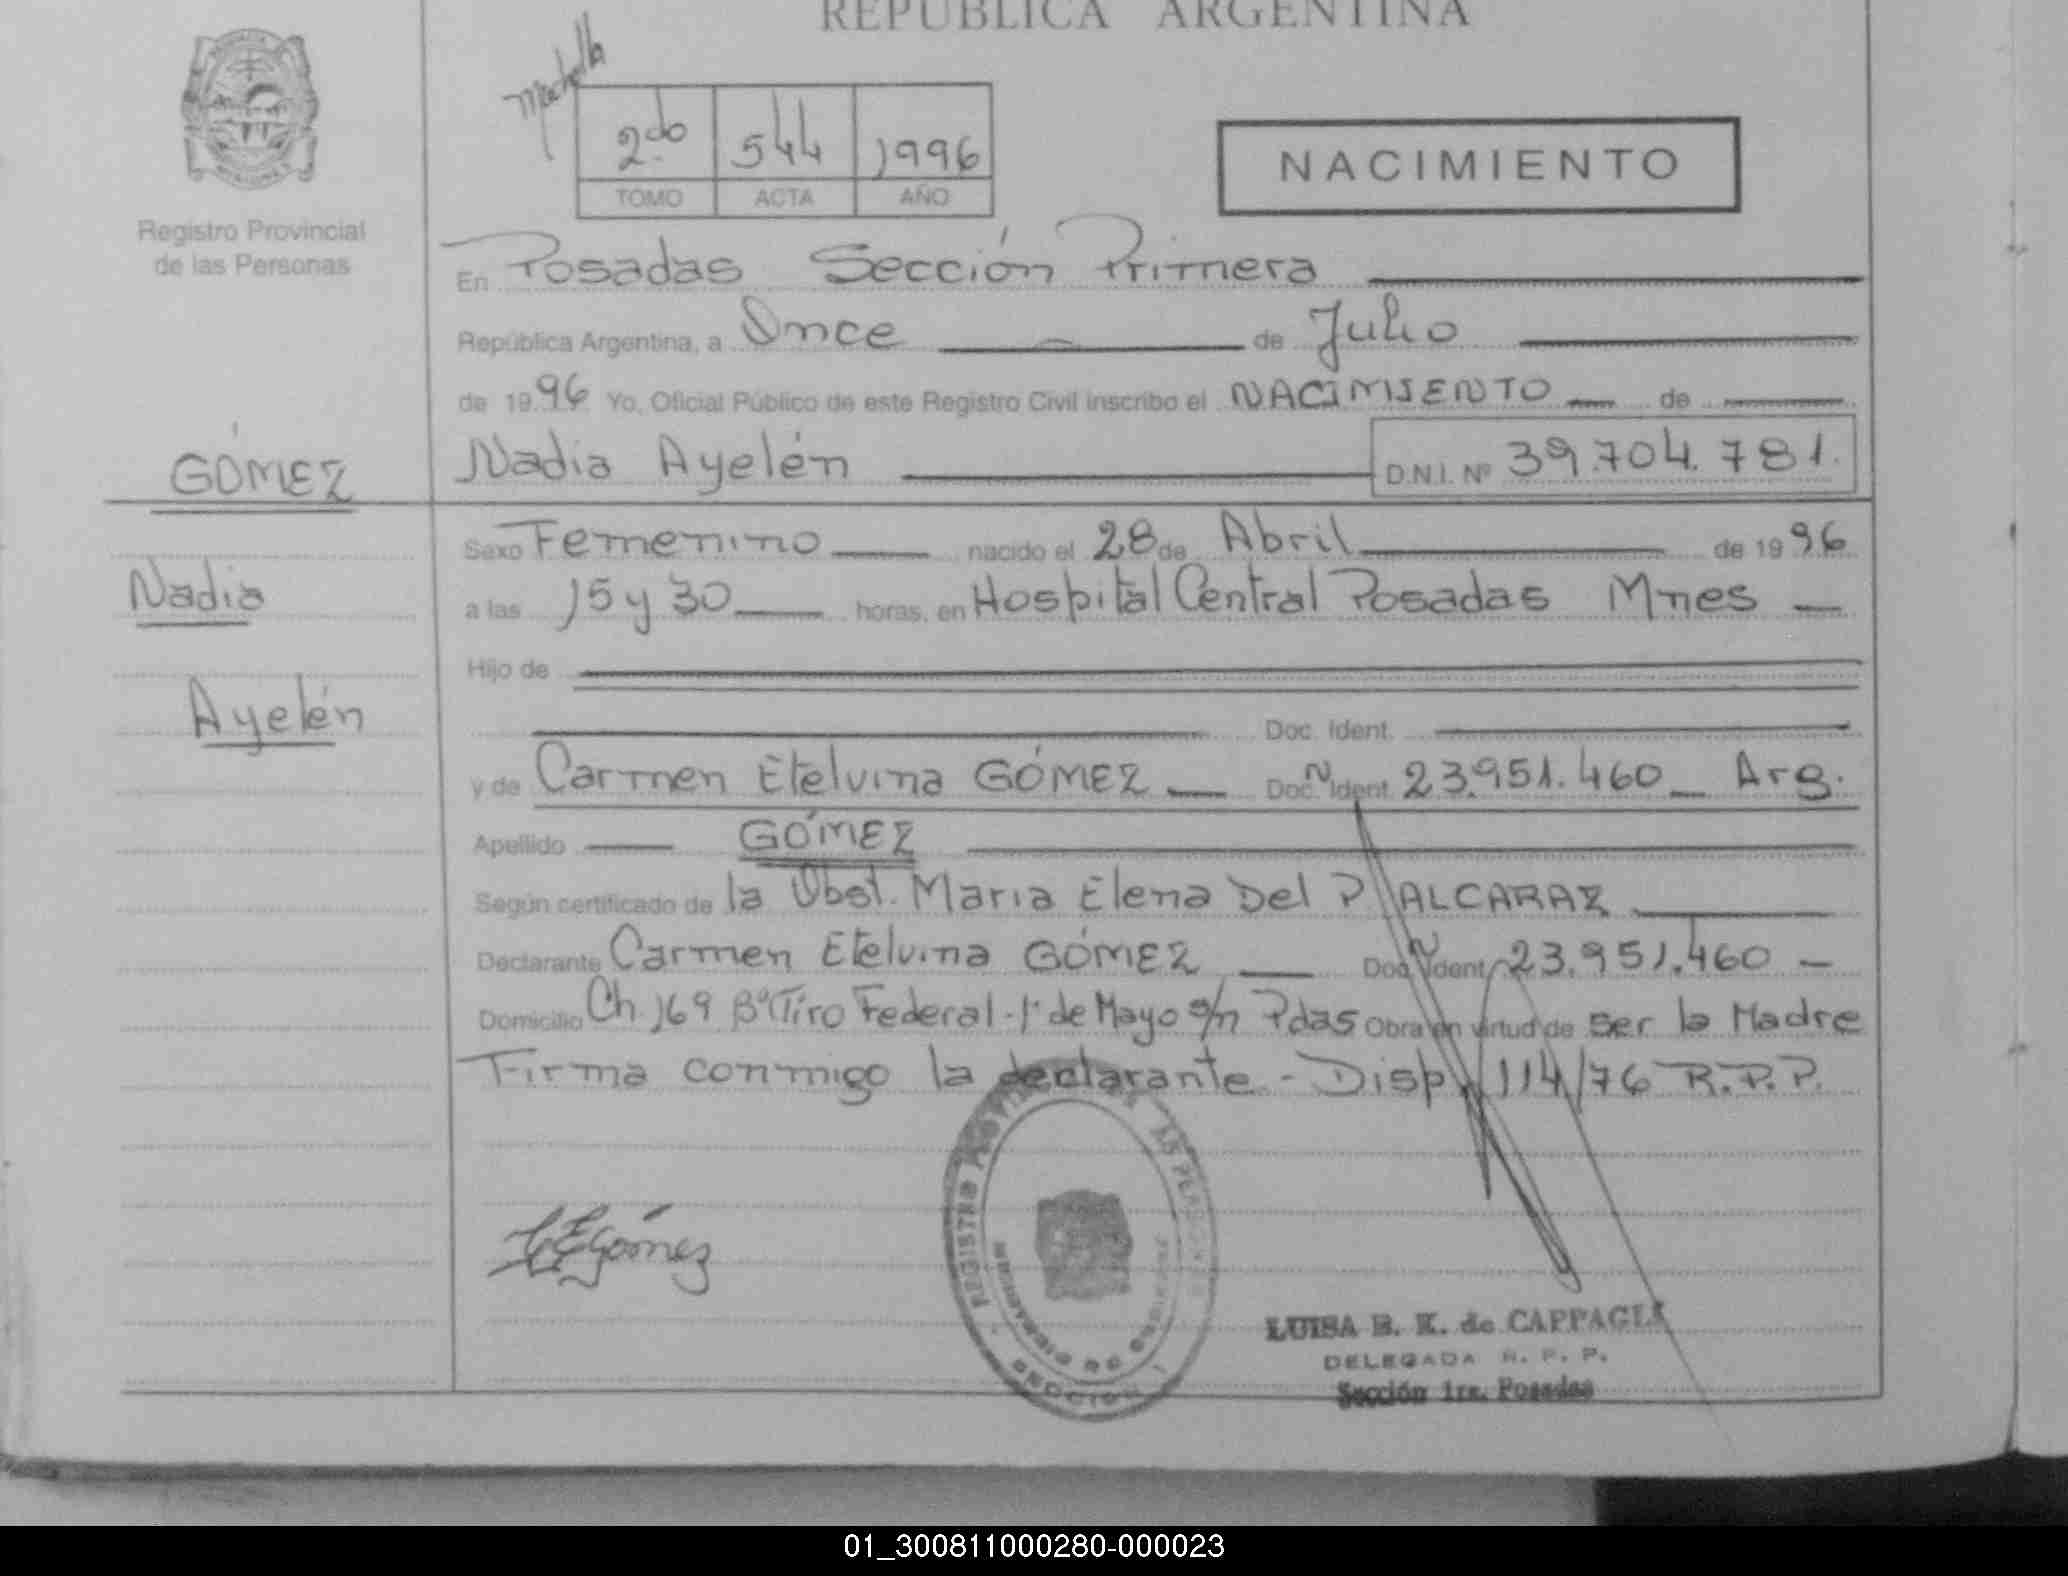 REPUBLICA ARGENTINA
2do 544 1996
TOMO ACTA AÑO
NACIMIENTO
Registro Provincial
de las Personas
En Posadas Sección Primera
República Argentina, a Once de Julio
de 1996 Yo, Oficial Público de este Registro Civil inscribo el NACIMIENTO de
GÓMEZ
Nadia Ayelén D.N.I. Nº 39.704.781.
Sexo Femenino nacido el 28 de Abril de 1996
Nadia
a las 15 y 30 horas, en Hospital Central Posadas Mnes
Hijo de
Ayelén
Doc. Ident.
y de Carmen Etelvina GÓMEZ Doc. Ident. 23.951.460 Arg.
Apellido GÓMEZ
Según certificado de la Obst. Maria Elena Del P ALCARAZ
Declarante Carmen Etelvina GÓMEZ Doc. Ident. 23.951.460
Domicilio Ch. 169 Bº Tiro Federal - 1º de Mayo s/n Pdas Obra en virtud de ser la Madre
Firma conmigo la declarante - Disp. 114/76 R.P.P.
CEGómez
LUISA B. K. de CAPPAGLI
DELEGADA R. P. P.
Sección 1ra. Posadas
01_300811000280-000023